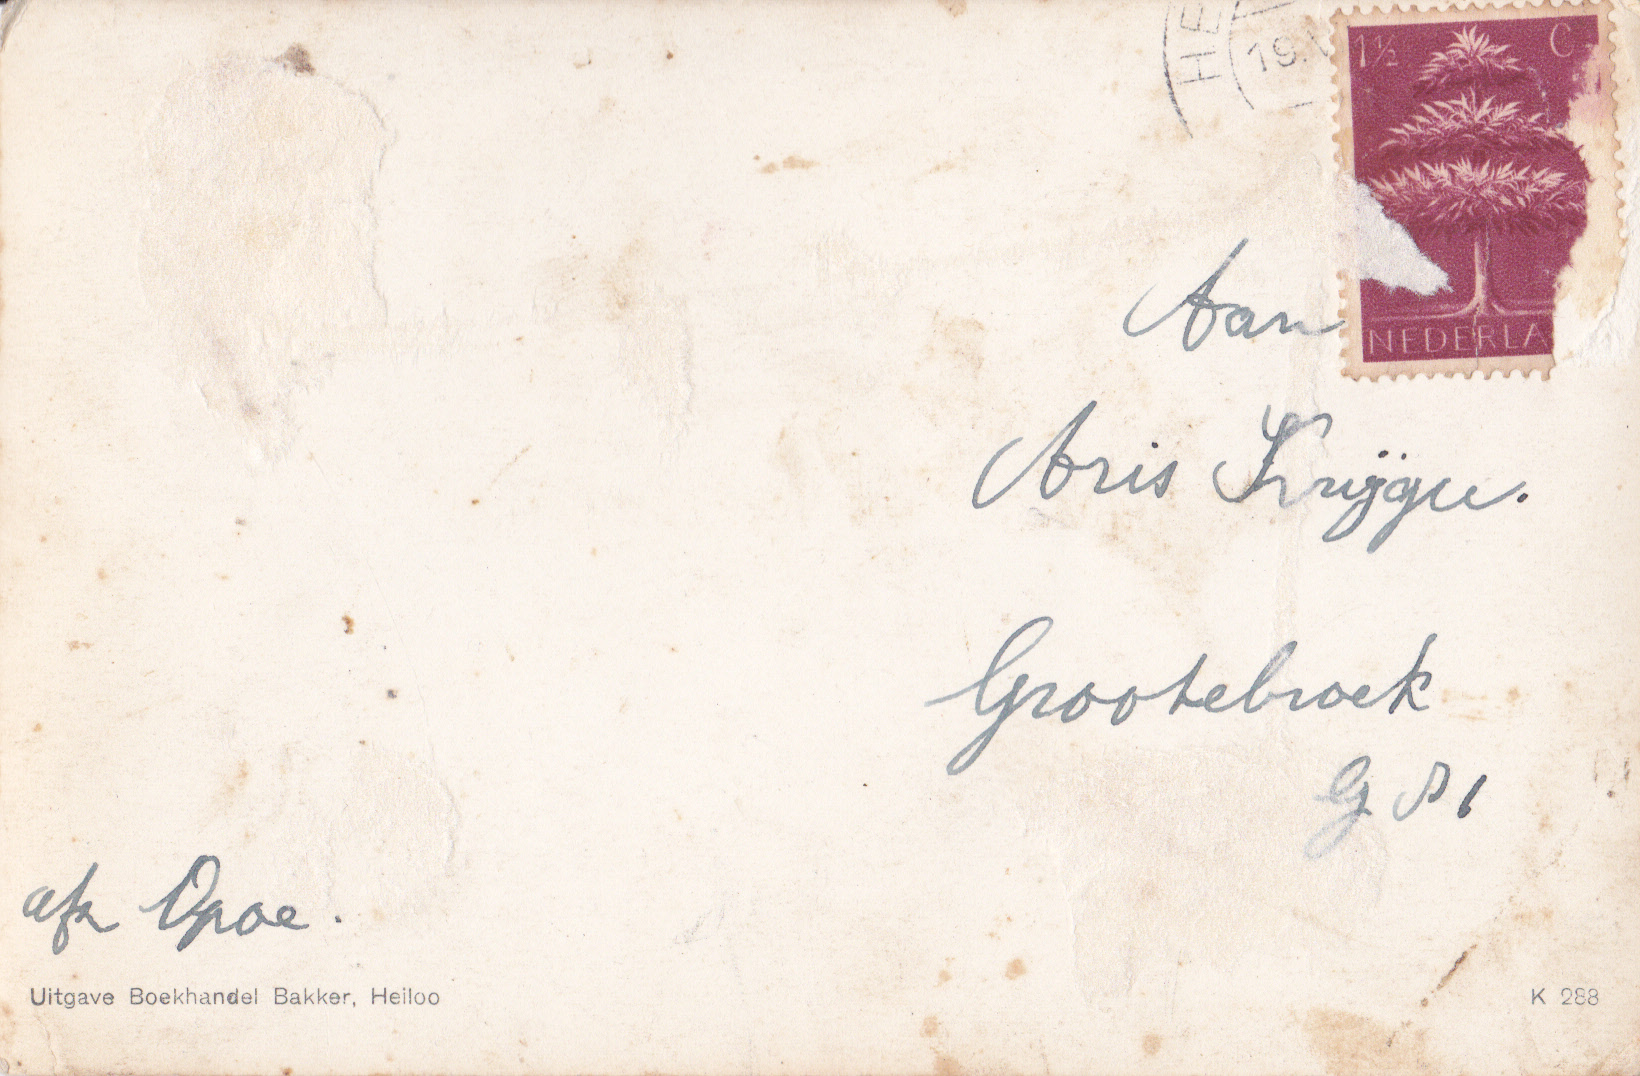 HE
19.V
1½ C
NEDERLA
Aan
Aris
Grootebroek
G 81
afz Opoe.
Uitgave Boekhandel Bakker, Heiloo
K 288